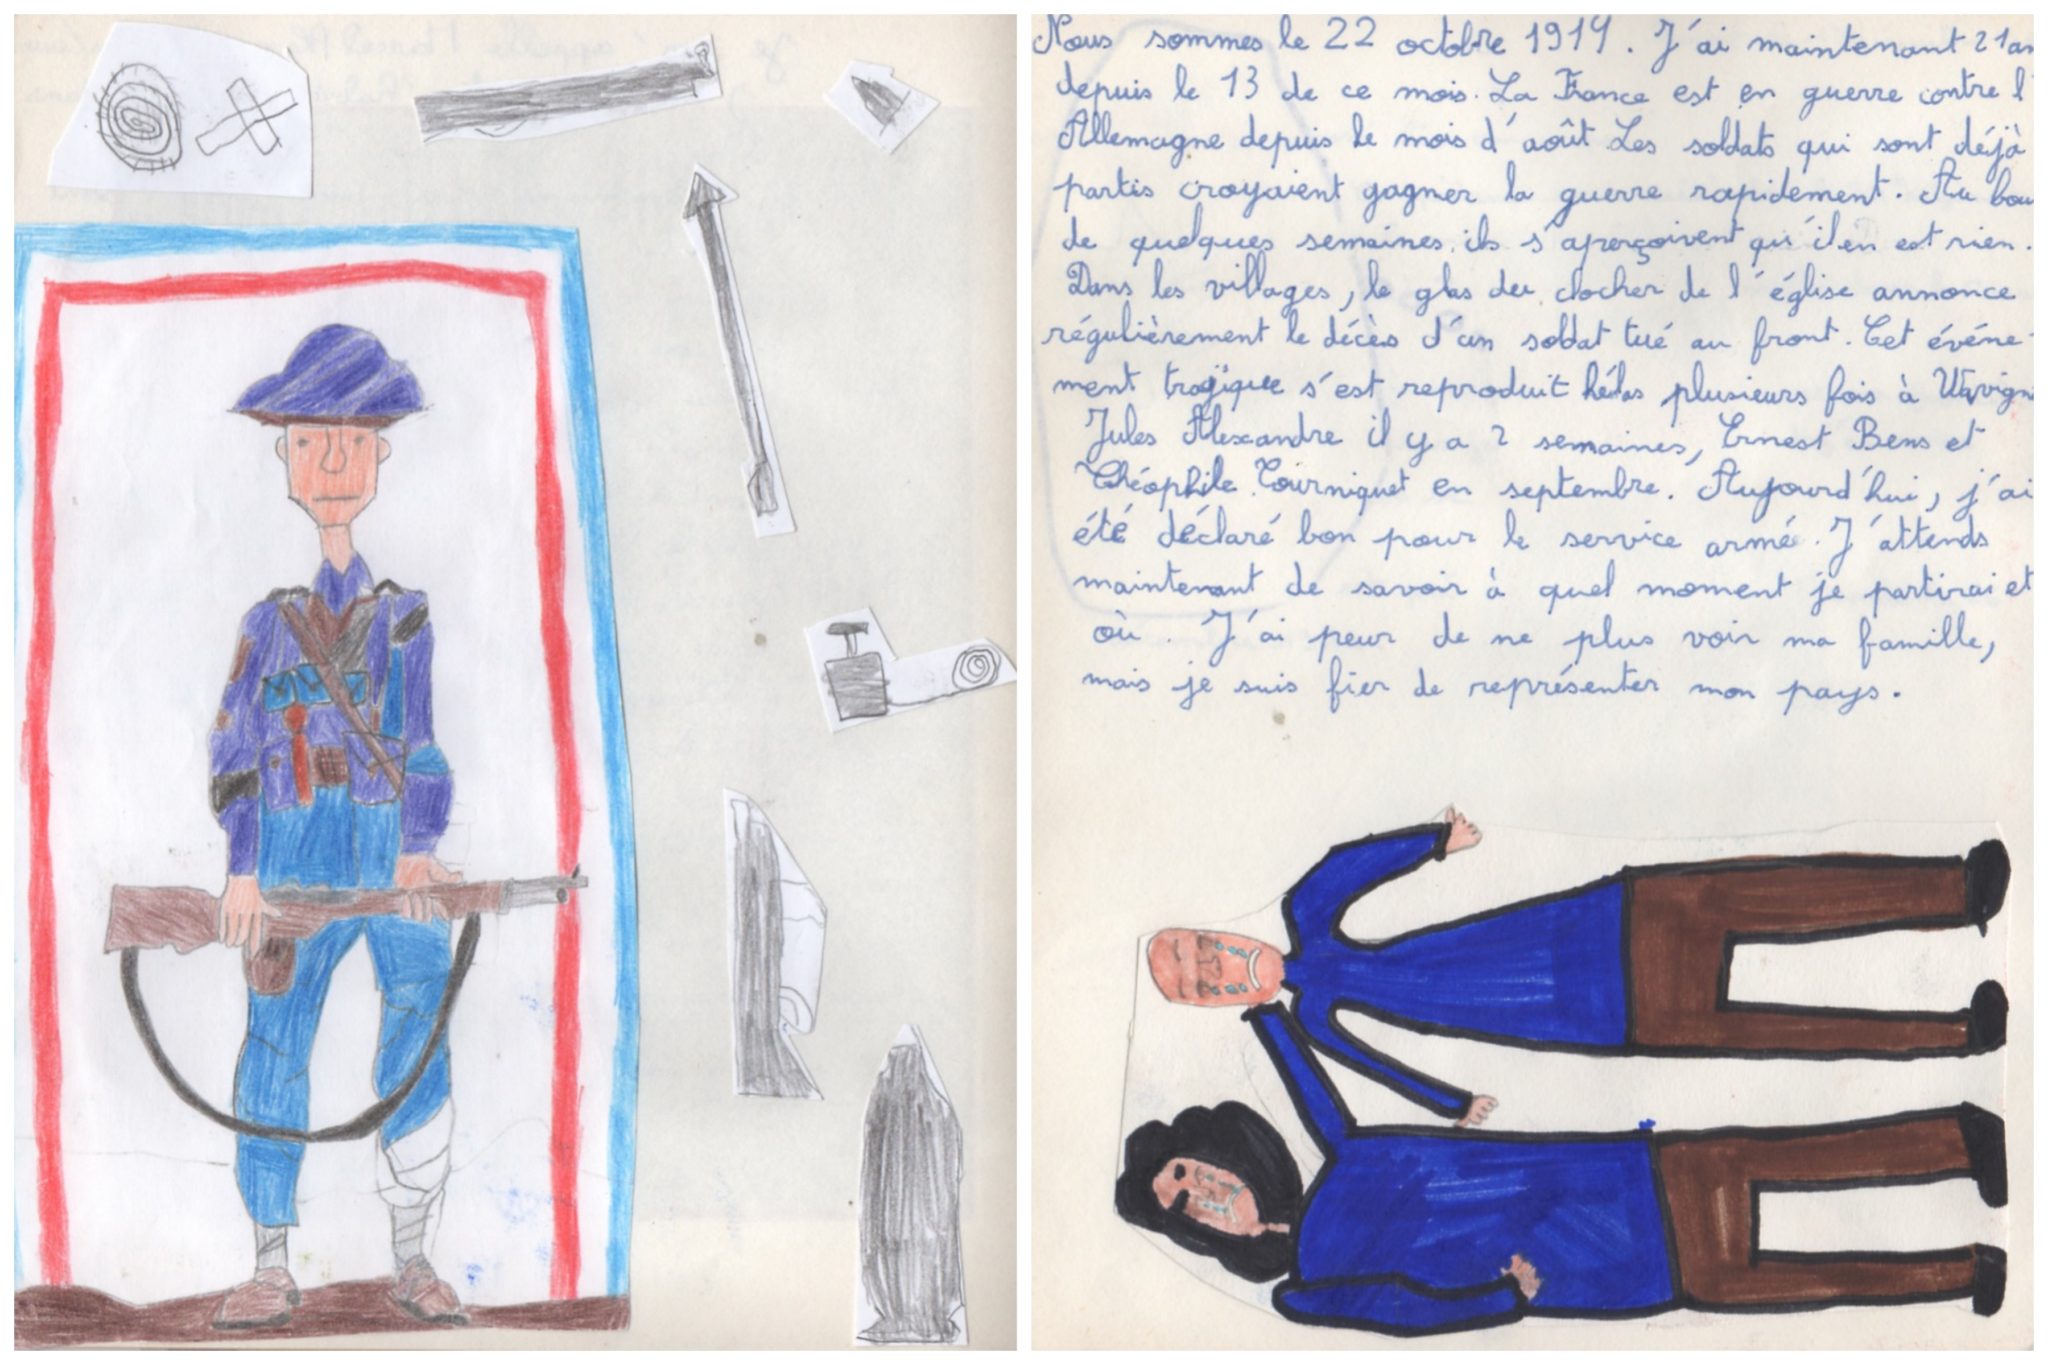 Nous sommes le 22 octobre 1914. J'ai maintenant 21 an
depuis le 13 de ce mois. La France est en guerre contre l'
Allemagne depuis le mois d'août Les soldats qui sont déjà
partis croyaient gagner la guerre rapidement. Au bou
de quelques semaines, ils s'aperçoivent qu'il en est rien.
Dans les villages, le glas du clocher de l'église annonce
régulièrement le décès d'un soldat tué au front. Cet événe-
ment tragique s'est reproduit hélas plusieurs fois à
Jules Alexandre il y a 2 semaines, Ernest Bens et
Théophile Tourniquet en septembre. Aujourd'hui, j'ai
été déclaré bon pour le service armé. J'attends
maintenant de savoir à quel moment je partirai et
où. J'ai peur de ne plus voir ma famille,
mais je suis fier de représenter mon pays.